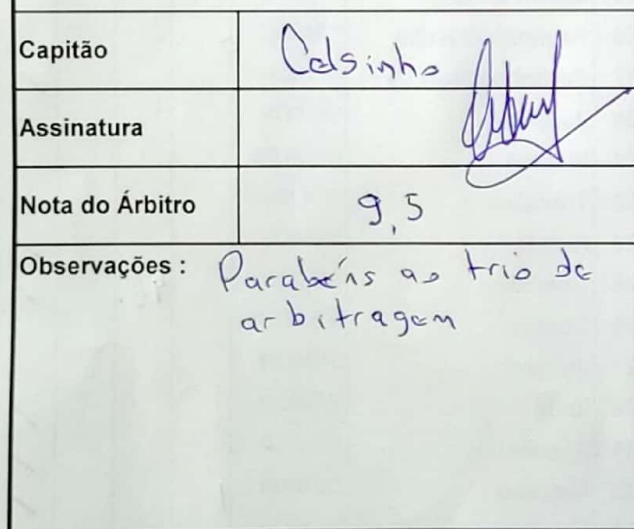 Capitão Celsinho
Assinatura
Nota do Árbitro 9,5
Observações : Parabéns ao trio de
arbitragem